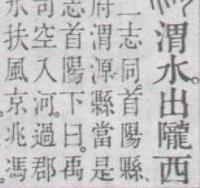 渭水。出隴西
二志同。首陽縣
府渭源縣當是
志首陽下曰。禹
司空入河。過郡
水扶風。京兆。馮